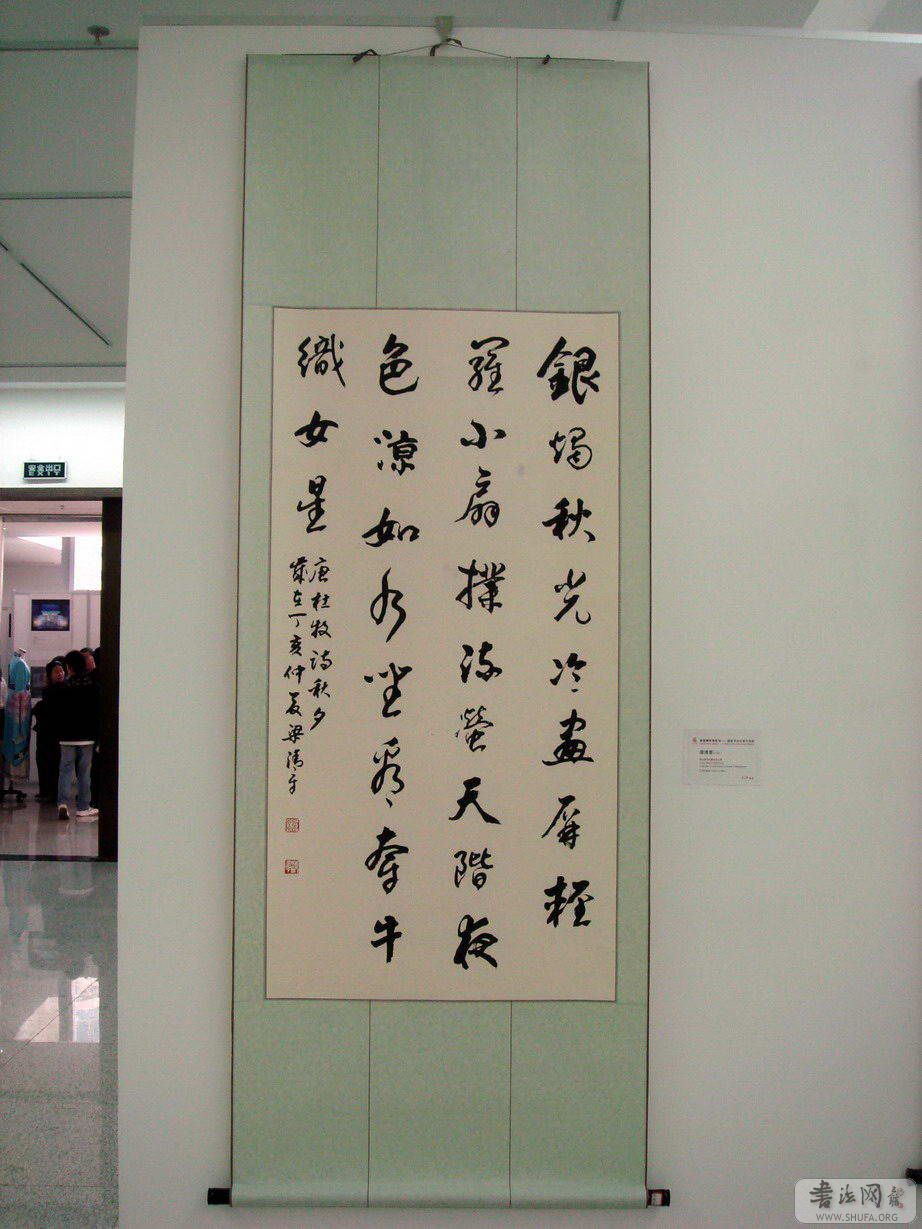 銀燭秋光冷畫屏輕
羅小扇撲流螢天階夜
色涼如水坐看牽牛
織女星
唐杜牧詩秋夕
歲在丁亥仲夏梁清
安全出口
书法网
WWW.SHUFA.ORG